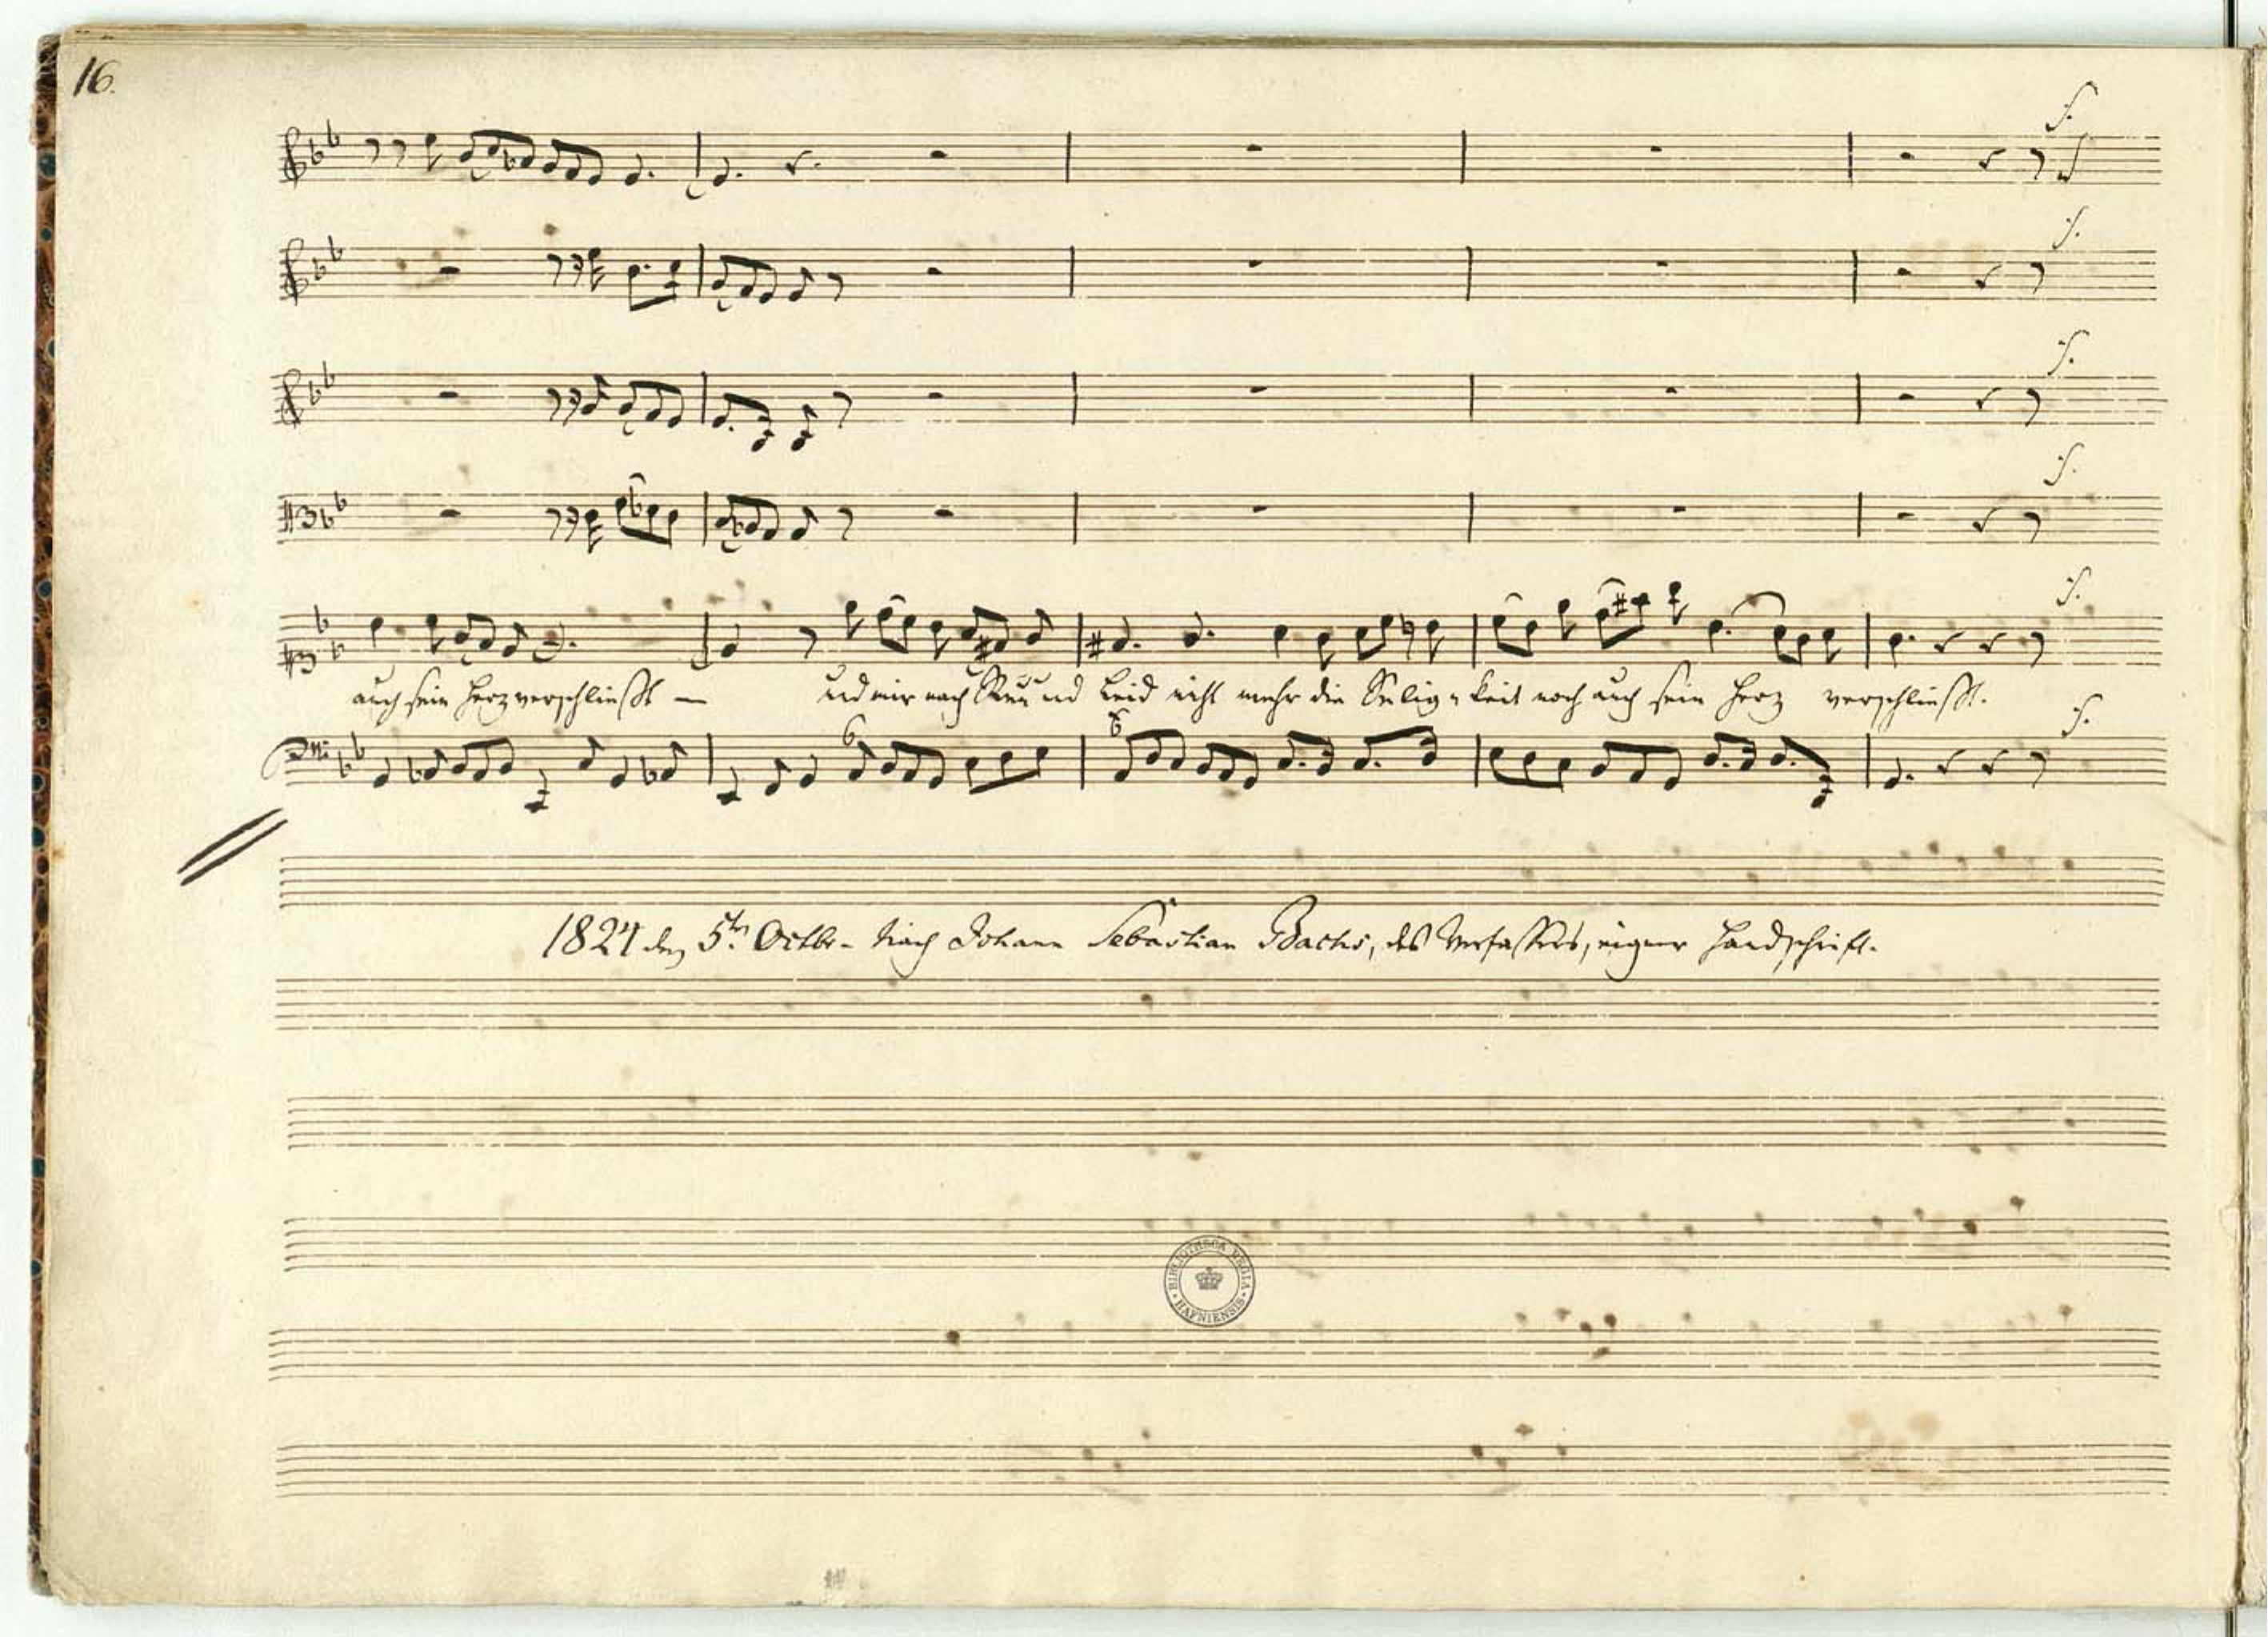 16.
auch sein Herz verschließt —
und mir nach Reu und Leid nicht mehr die Selig-keit noch auch sein Herz verschließt.
6
6
1824 den 5ten Octbr. Nach Johann Sebastian Bachs, des Verfassers, eigner Handschrift.
BIBLIOTHECA REGIA
HAFNIENSIS